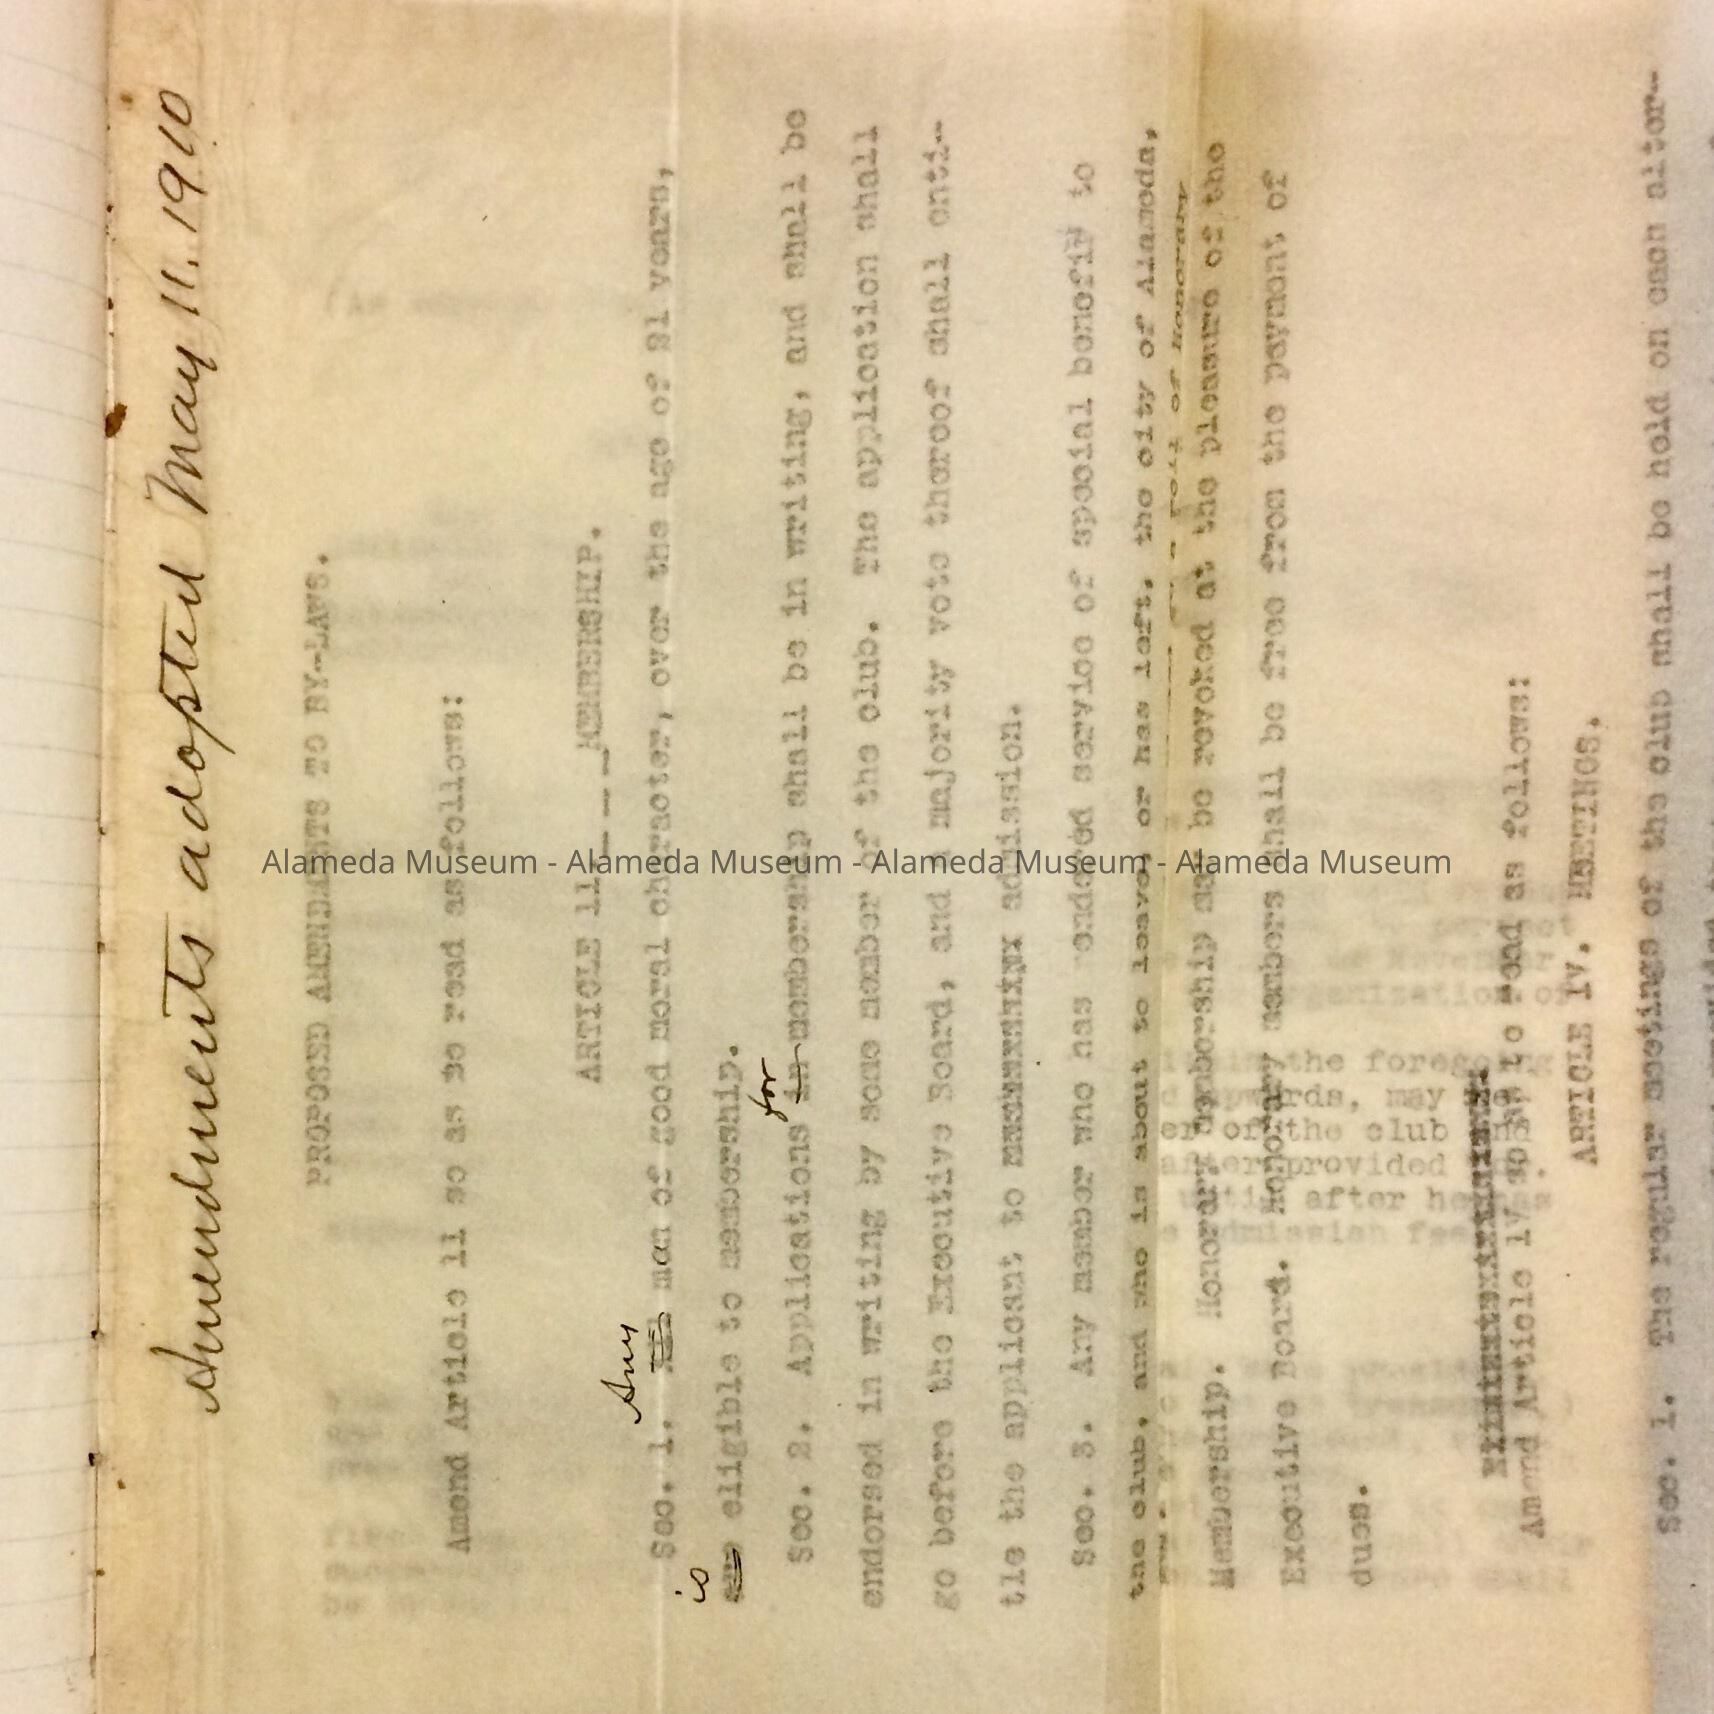 Amendments adopted May 11. 1910
PROPOSED AMENDMENTS TO BY-LAWS.
Amend Article 11 so as to read as follows:
ARTICLE 11 _ _ _ MEMBERSHIP.
Any
Sec. 1. man of good moral character, over the age of 21 years,
is
eligible to membership.
for
Sec. 2. Applications in membership shall be in writing, and shall be
endorsed in writing by some member of the club. The application shall
go before the Executive Board, and a majority vote thereof shall enti-
tle the applicant to admission.
Sec. 3. Any member who has rendered service of special benefit to
the club, and who is about to leave, or has left, the city of Alameda,
roll of Honorary
Membership. Honorary membership may be revoked at the pleasure of the
Executive Board. Honorary members shall be free from the payment of
dues.
Amend Article 1V so as to read as follows:
ARTICLE IV. MEETINGS.
Sec. 1. The regular meetings of the club shall be held on each alter-
Alameda Museum - Alameda Museum - Alameda Museum - Alameda Museum